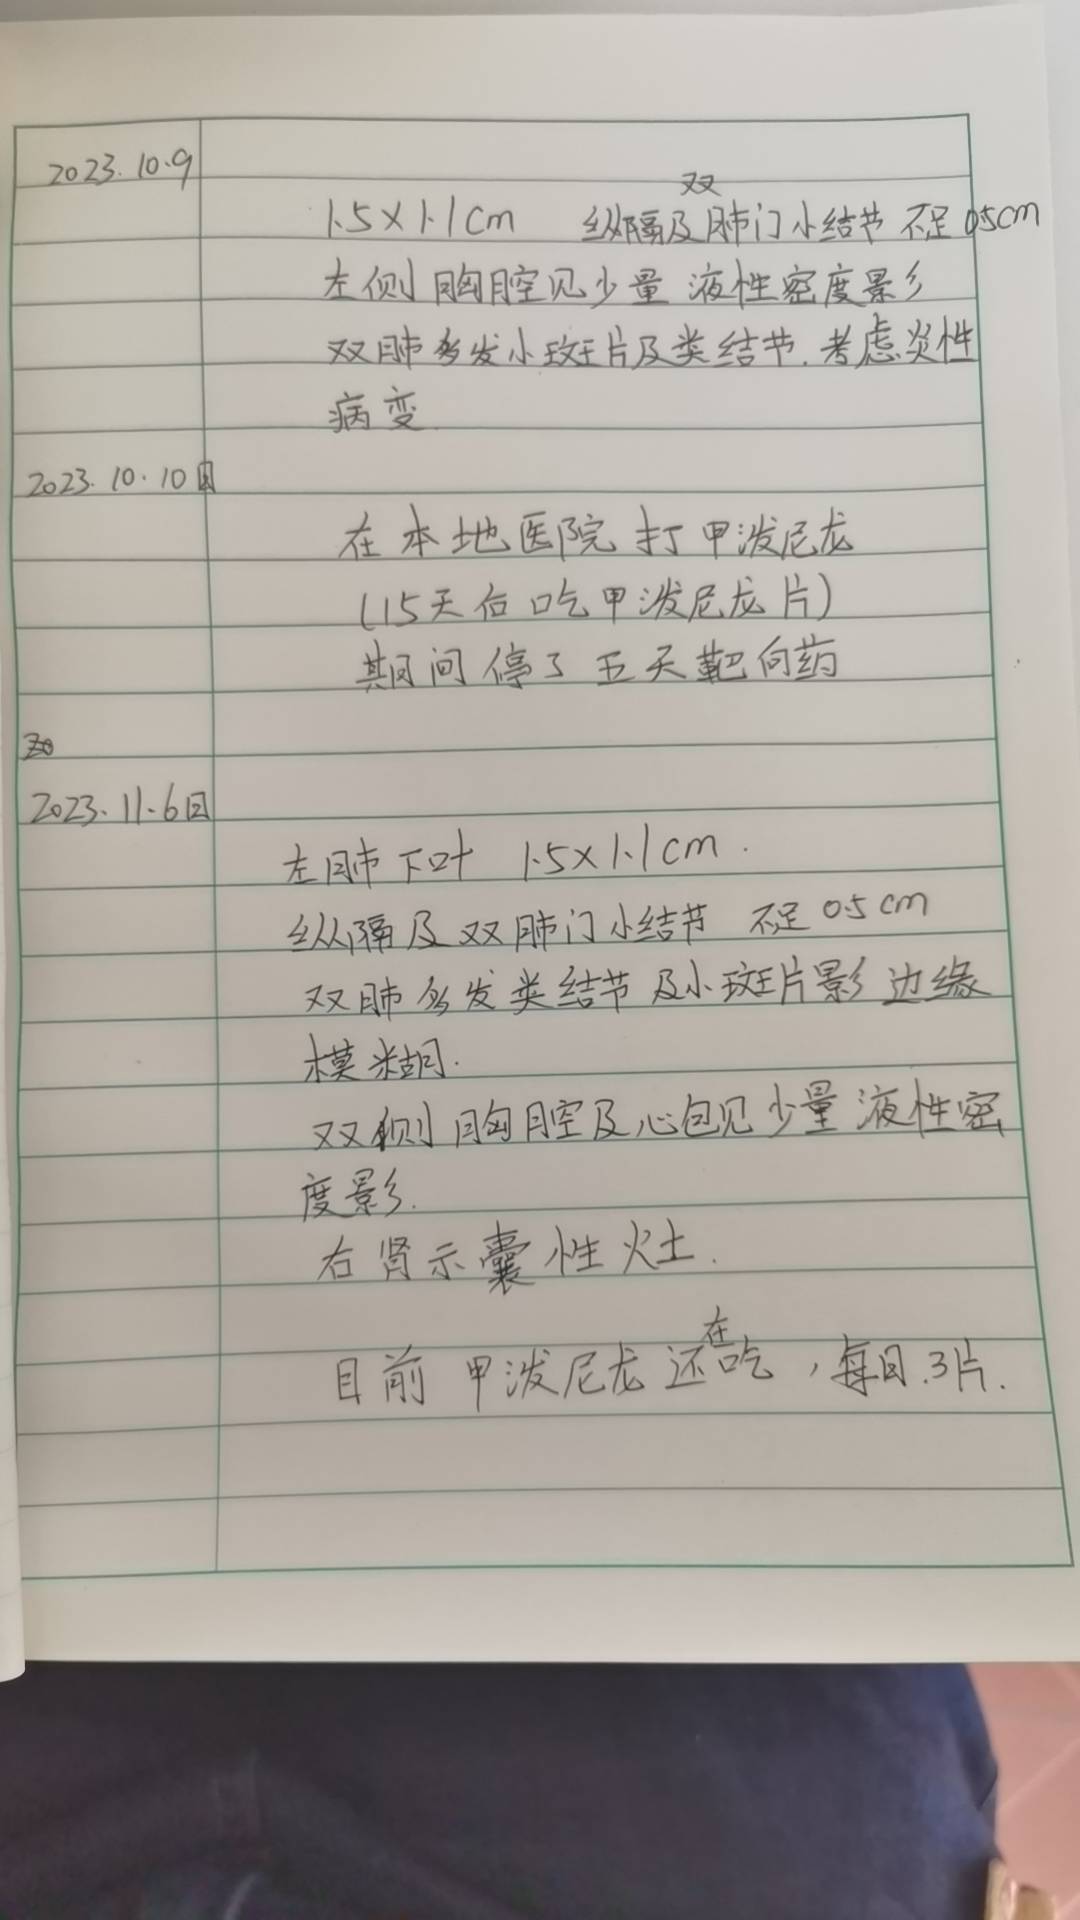 2023.10.9
双
1.5×1.1cm 纵隔及肺门小结节 不足0.5cm
左侧胸腔见少量液性密度影
双肺多发小斑片及类结节.考虑炎性
病变.
2023.10.10日
在本地医院打甲泼尼龙
(15天后吃甲泼尼龙片)
期间停了五天靶向药
2023.11.6日
左肺下叶 1.5×1.1cm.
纵隔及双肺门小结节 不足0.5cm
双肺多发类结节及小斑片影边缘
模糊.
双侧胸腔及心包见少量液性密
度影.
右肾示囊性灶.
在
目前甲泼尼龙还吃,每日.3片.